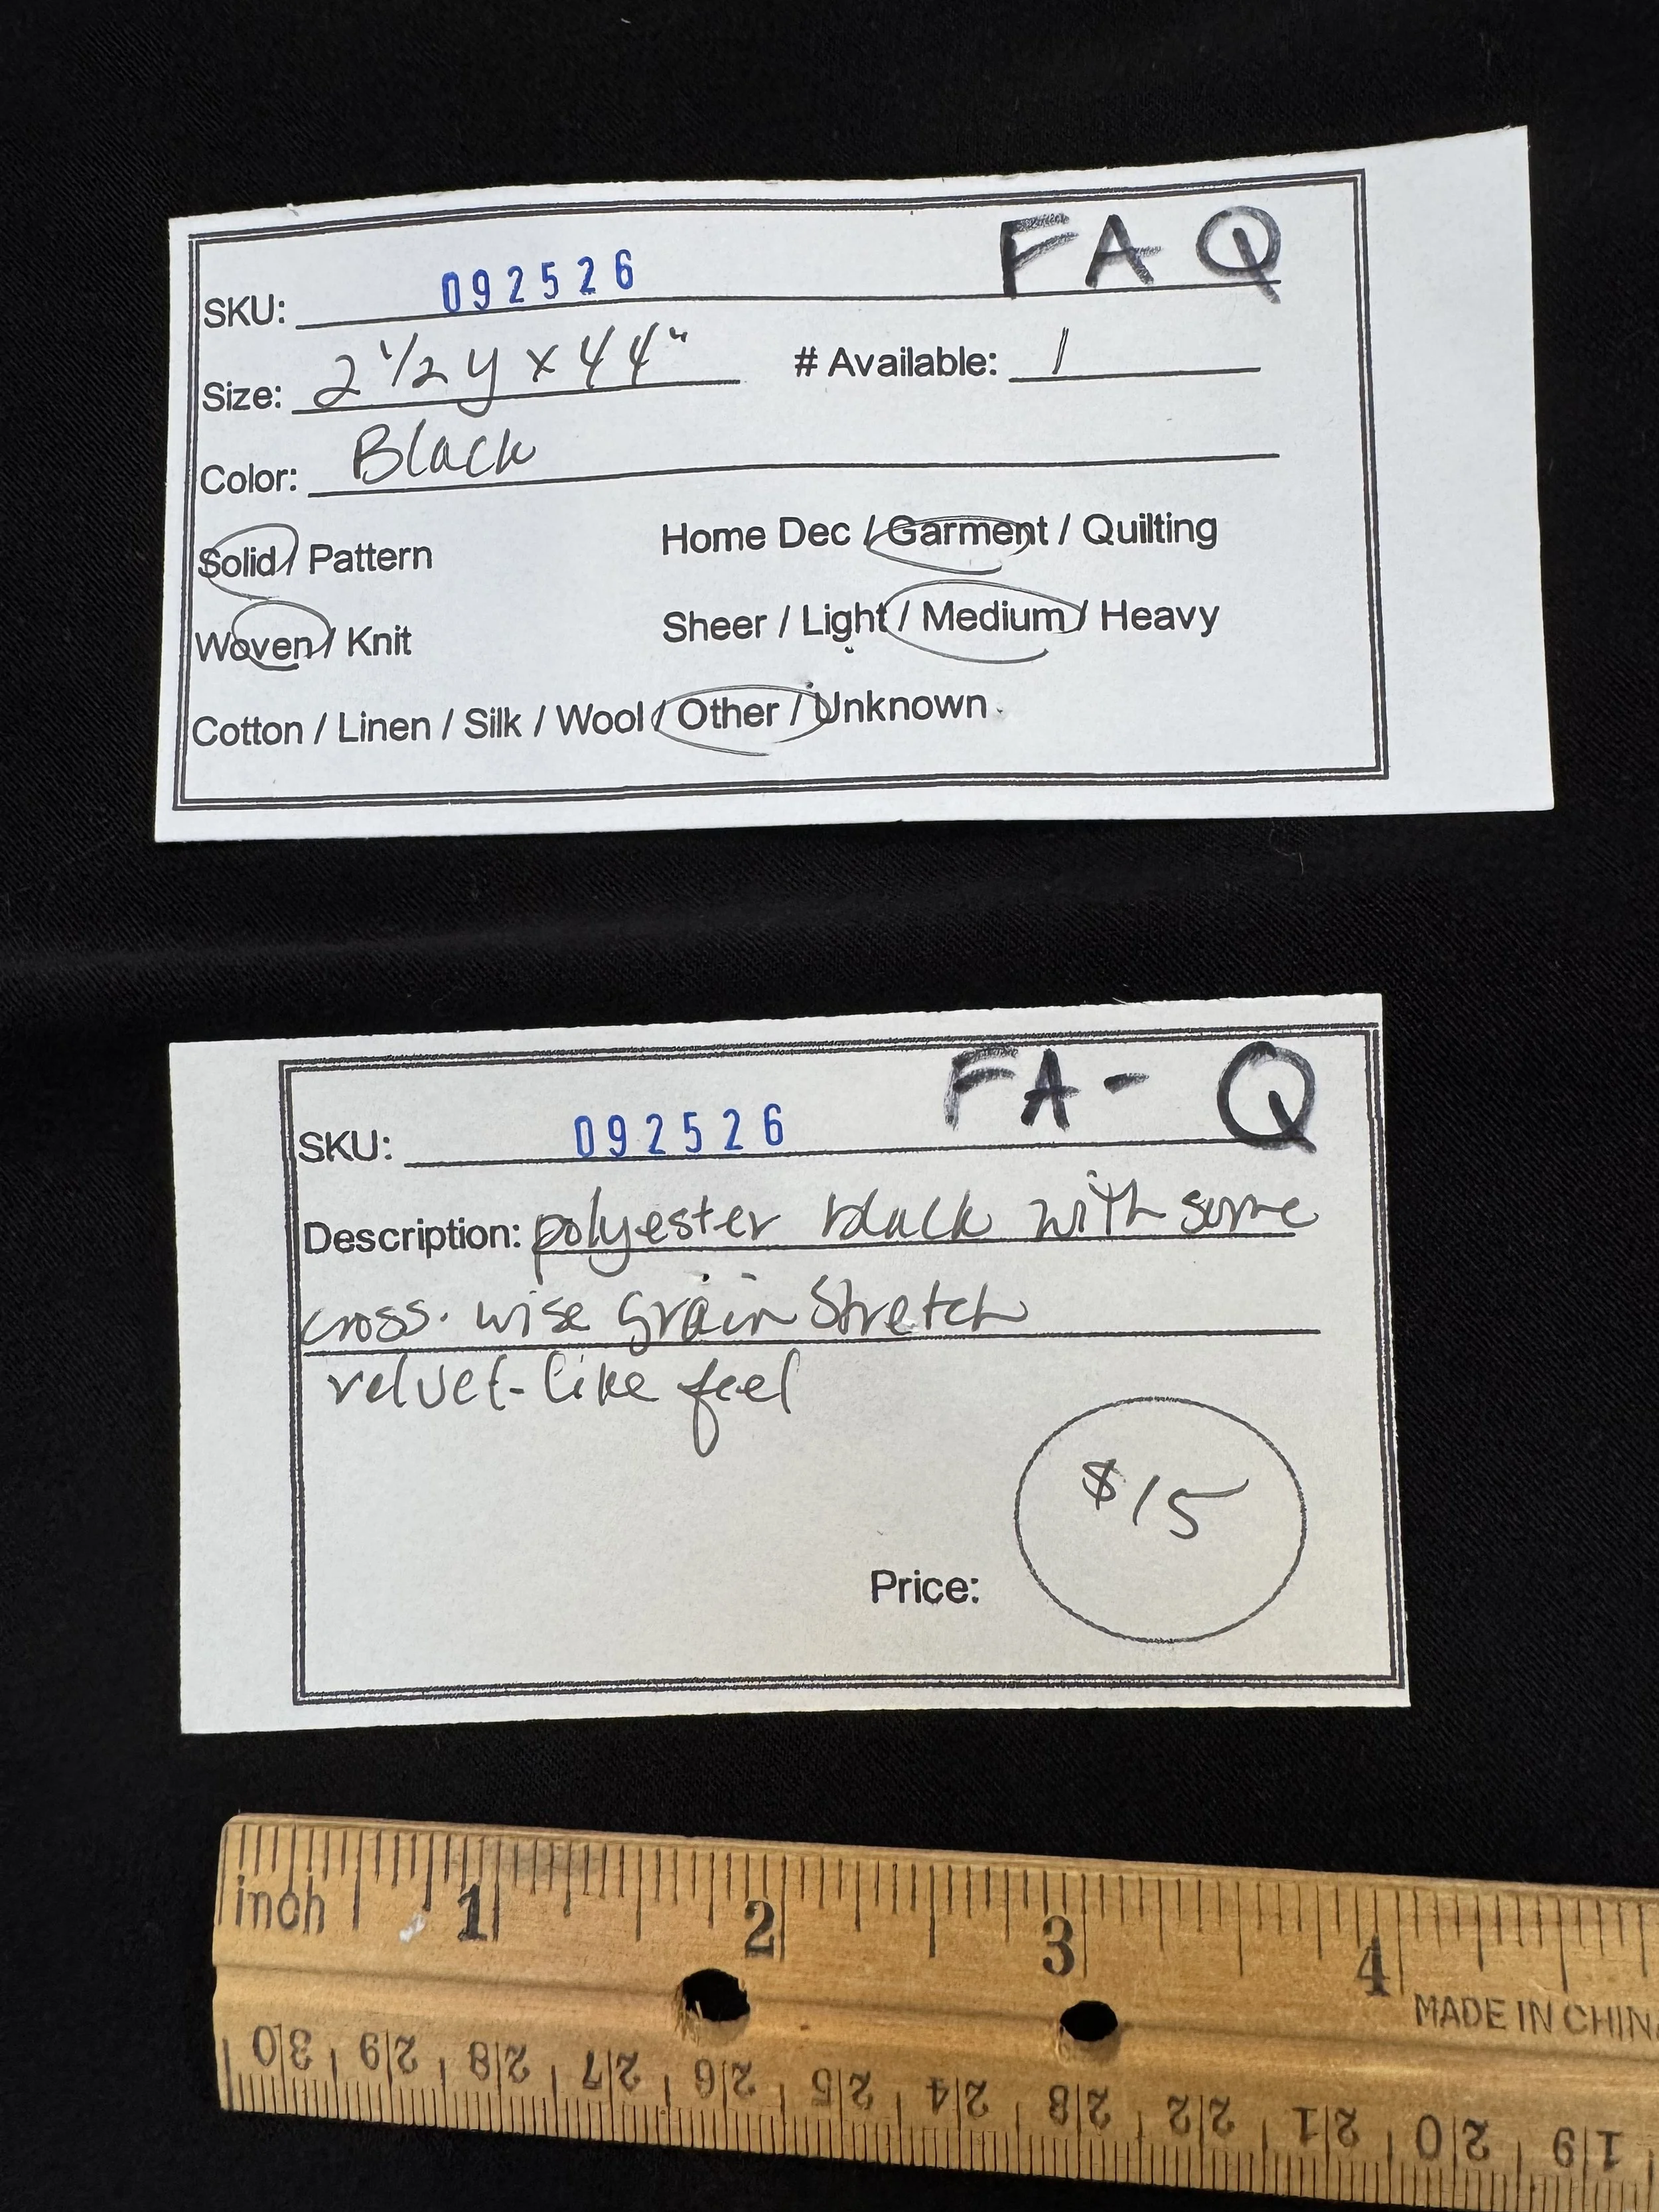 SKU: 092526 FAQ
Size: 2 1/2 y x 44" # Available: 1
Color: Black
Solid / Pattern Home Dec / Garment / Quilting
Woven / Knit Sheer / Light / Medium / Heavy
Cotton / Linen / Silk / Wool / Other / Unknown
SKU: 092526 FA-Q
Description: polyester black with some
cross-wise grain stretch
velvet-like feel
$15
Price:
inch 1 2 3 4
MADE IN CHIN
30 29 28 27 26 25 24 23 22 21 20 19